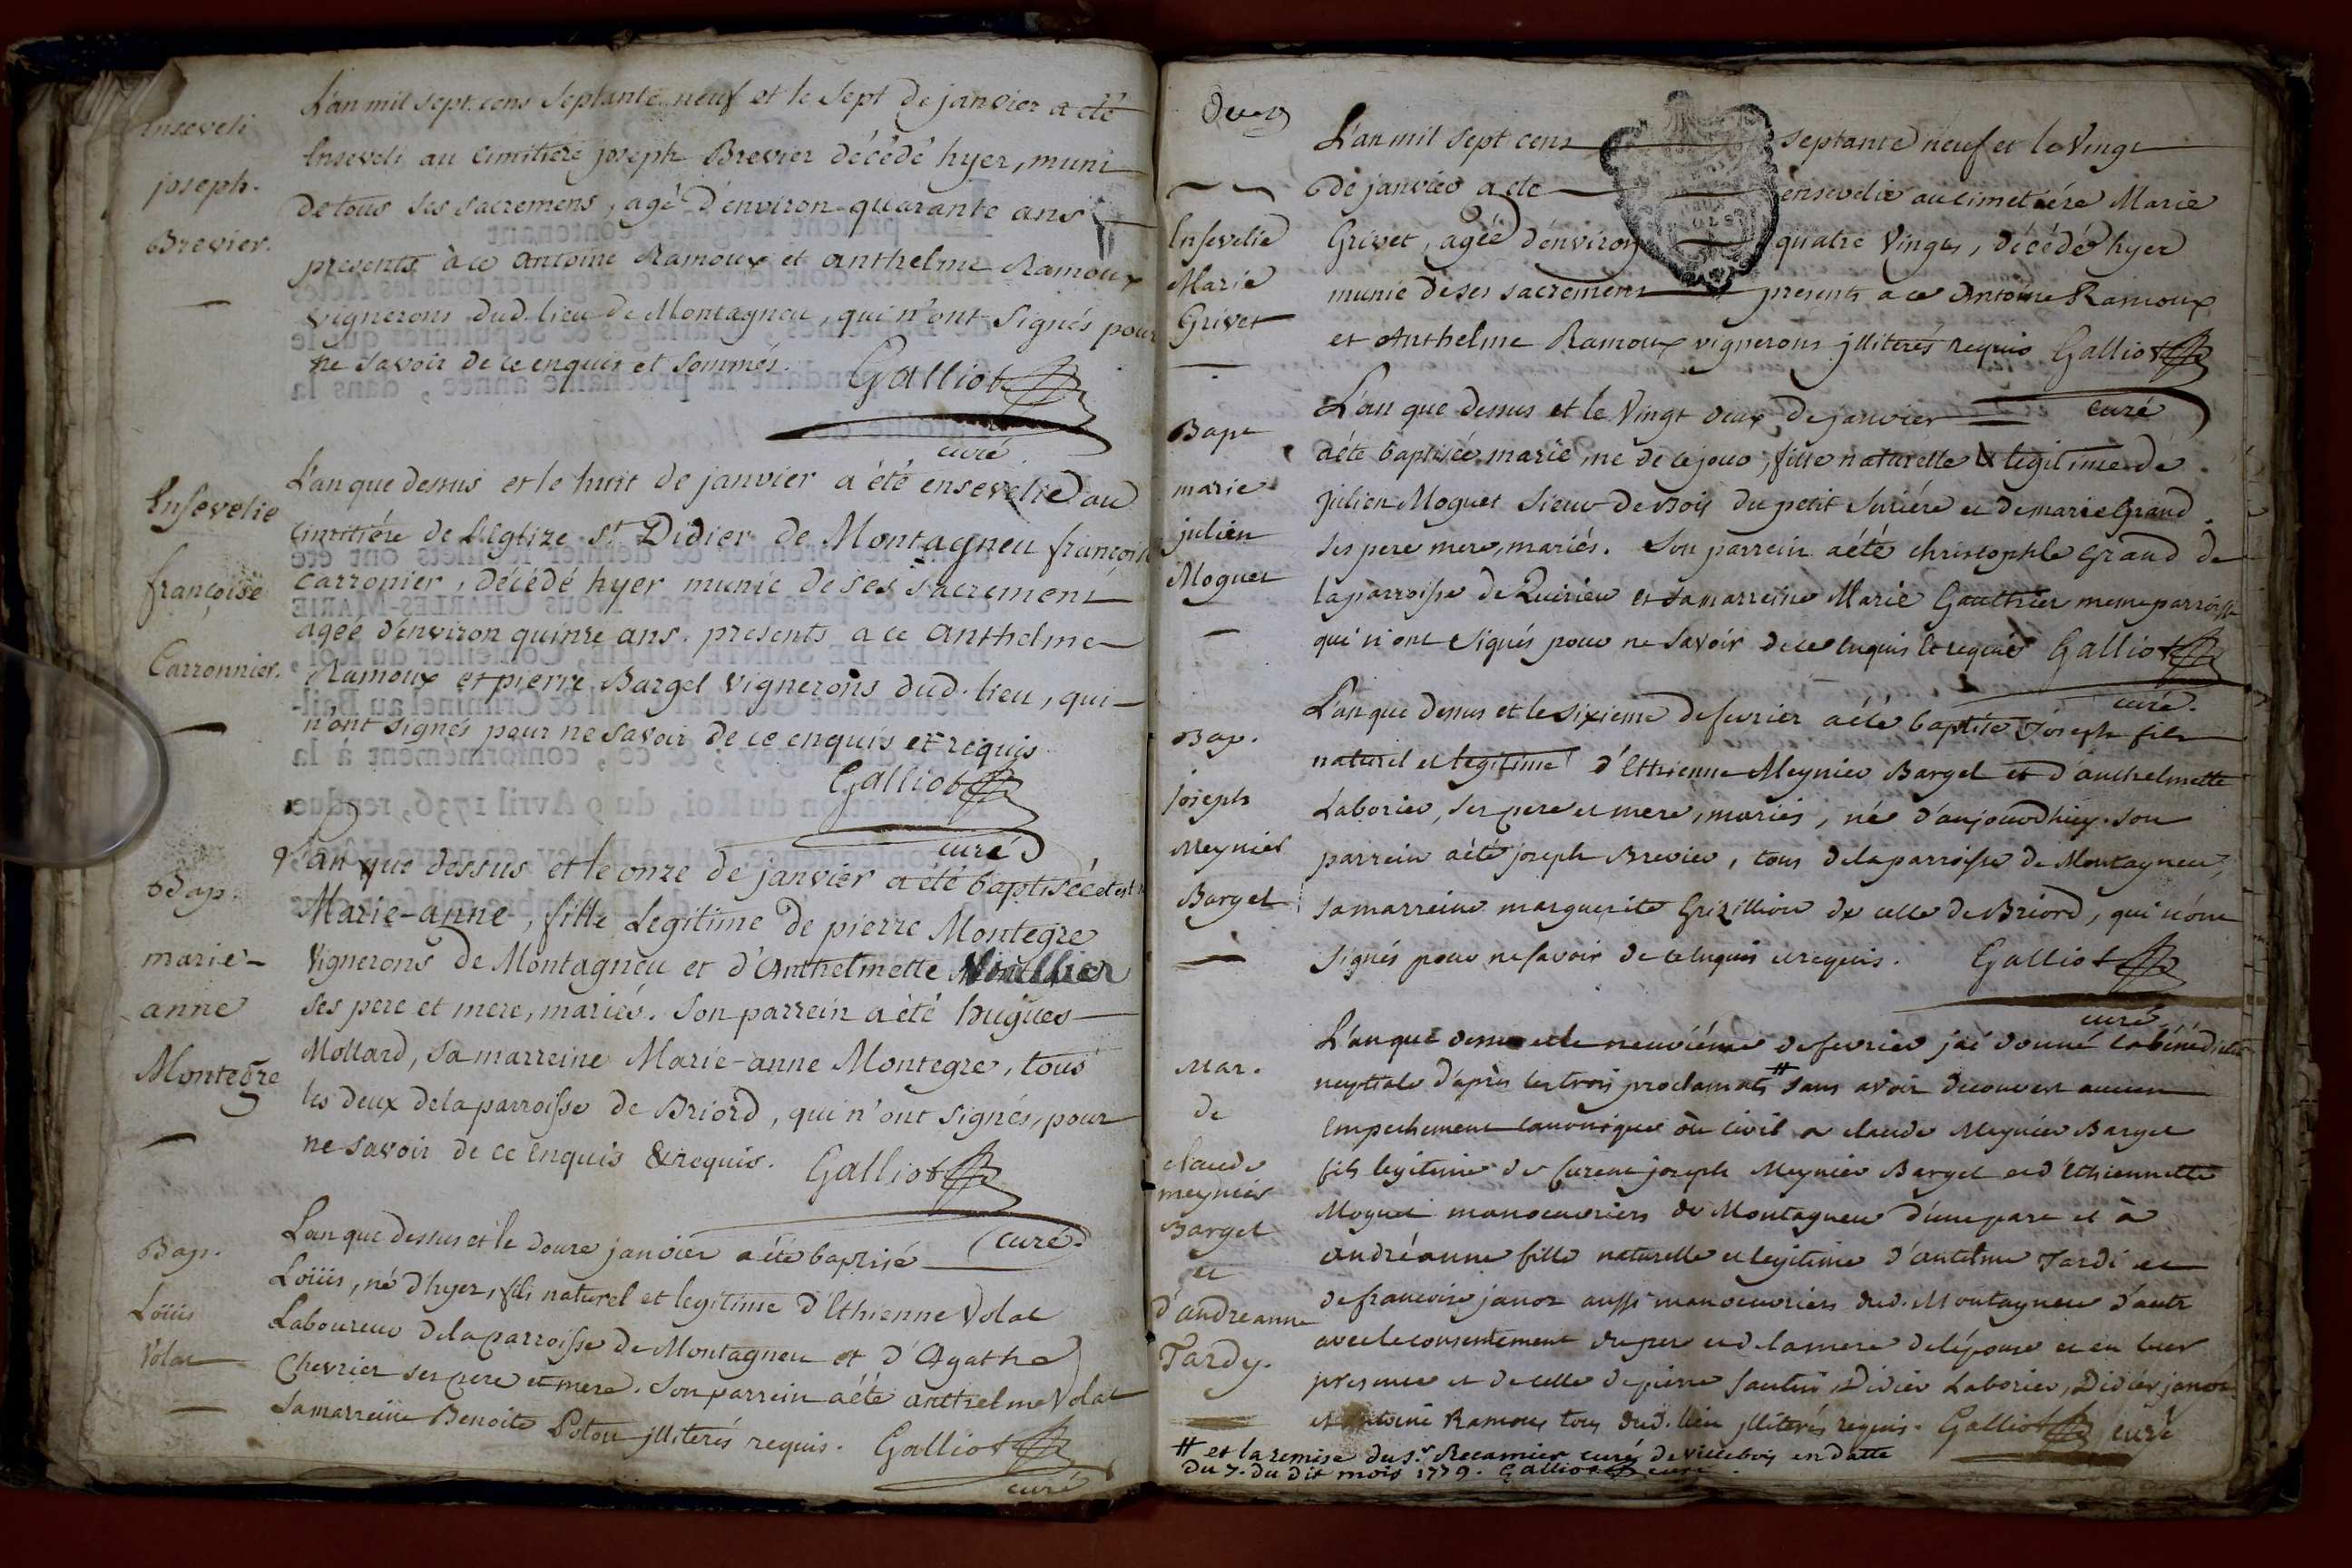 Enseveli
joseph.
Brevier.
L'an mil sept cens septante neuf et le sept de janvier a été
Enseveli au cimitiére joseph Brevier décédé hyer, muni
de tous ses sacremens, agé d'environ quarante ans
presents à ce antoine Ramoux et anthelme Ramoux
vignerons dud. lieu de Montagneu, qui n'ont signés pour
ne savoir de ce enquis et sommés. Galliot
curé
Ensevelie
françoise
Carronnier.
L'an que dessus et le huit de janvier a été ensevelie au
cimitiére de l'Eglize St Didier de Montagneu françoise
carronier, décédé hyer munie de ses sacremens
agée d'environ quinze ans. presents a ce anthelme
Ramoux et pierre Bargel vignerons dud. lieu, qui
n'ont signés pour ne savoir de ce enquis et requis
Galliot
curé
Bap.
marie-
anne
Montegre
L'an que dessus et le onze de janvier a été baptisée
Marie-anne, fille Legitime de pierre Montegre
Vignerons de Montagneu et d'Anthelmette
ses pere et mere, mariés. Son parrein a été hugues
Mollard, sa marreine Marie-anne Montegre, tous
les deux de la parroisse de Briord, qui n'ont signés, pour
ne savoir de ce enquis & requis. Galliot
curé
Bap.
Loüis
Volat
L'an que dessus et le douze janvier a été baptisé
Loüis, né d'hyer, fils naturel et legitime d'Ethienne Volat
Laboureur de la parroisse de Montagneu et d'Agathe
Chevrier ses pere et mere. Son parrein a été anthelme Volat
sa marreine Benoite jlliterés requis. Galliot
curé
Ensevelie
Marie
Grivet
L'an mil sept cens septante neuf et le Vingt
de janvier a ete ensevelie au cimetiére Marie
Grivet, agée d'environ quatre Vingts, décédé hyer
munie de ses sacremens presents a ce Antoine Ramoux
et Anthelme Ramoux vignerons jlliterés requis Galliot
curé
Bapt
marie
julien
Moguet
L'an que dessus et le Vingt deux de janvier
a été baptisée marie née de ce jour, fille naturelle & legitime de
julien Moguet Sieur de Bois du petit et de marie Grand
ses pere mere, mariés. Son parrein a été christophle Grand de
la parroisse de Quirieu et sa marreine Marie Gauthier meme parroisse
qui n'ont signés pour ne savoir de ce enquis et requis Galliot
curé.
Bap.
joseph
Meynier
Bargel
L'an que dessus et le sixieme de fevrier a été baptisé Joseph fils
naturel et legitime d'Ethienne Meynier Bargel et d'anthelmette
Laborier, ses pere et mere, mariés, né d'aujourdhuy. son
parrein a été joseph Brevier, tous de la parroisse de Montagneu,
sa marreine marguerite Grizillion de celle de Briord, qui n'ont
signés pour ne savoir de ce enquis et requis. Galliot
curé
Mar.
de
claude
meynier
Bargel
et
d'andreanne
Tardy.
L'an que dessus et le neuviéme de fevrier jai donné la bénédiction
neptiale d'après les trois proclamats # sans avoir decouvert aucun
empechement canonique où civil a claude Meynier Bargel
fils legitime de joseph Meynier Bargel et d'Ethiennette
Moguet manoeuvriers de Montagneu d'une part et à
andréanne fille naturelle et legitime d'antelme Tardi et
de francoise janot aussi manoeuvriers dud. Montagneu d'autre
avec le consentement du pere et de la mere de l'épouse et en leur
presence et de celle de pierre Didier Laborier, Didier janot
et Antoine Ramoux tous dud. lieu jlliterés requis. Galliot curé
# et la remise du sr. Recamier curé de Villebois en datte
du 7. du dit mois 1779. Galliot curé.